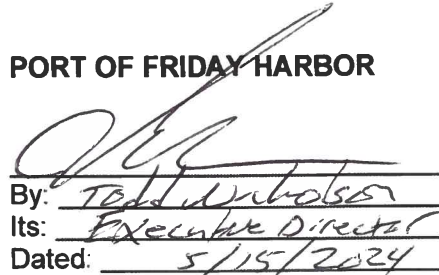 PORT OF FRIDAY HARBOR
By: Todd Nicholson
Its: Executive Director
Dated: 5/15/2024